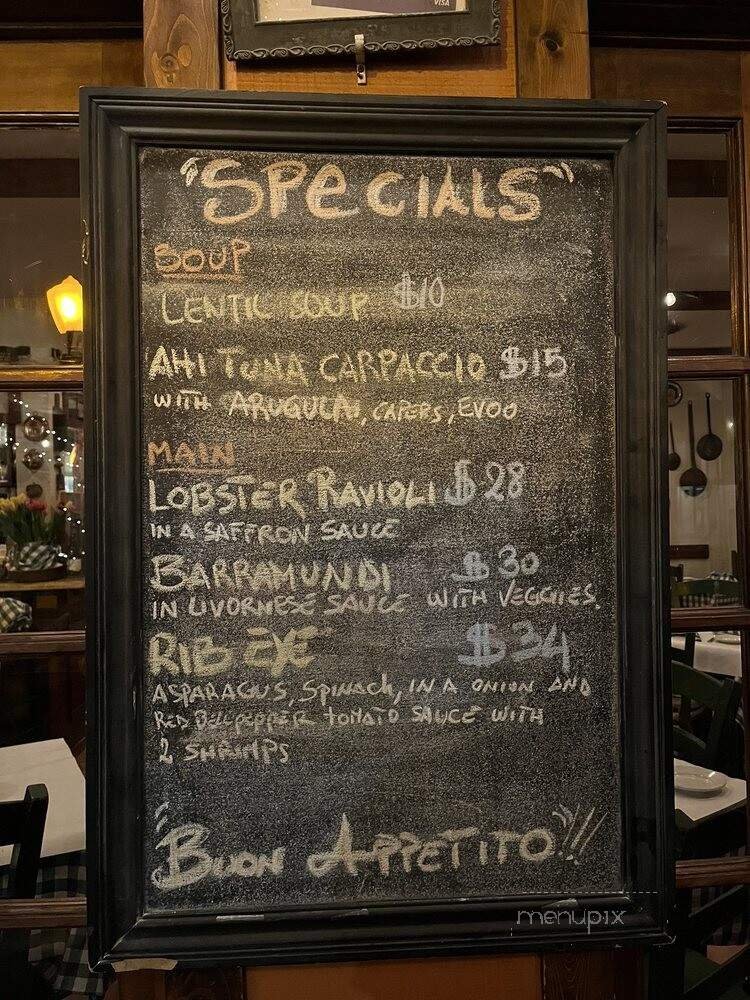 VISA
"SPecIALS"
SOUP
LENTIL SOUP $10
AHI TUNA CARPACCIO $15
WITH ARUGULA, CAPERS, EVOO
MAIN
LOBSTER RAVIOLI $28
IN A SAFFRON SAUCE
BARRAMUNDI $30
IN LIVORNESE SAUCE WITH VEGGIES.
RIB EYE $34
ASPARAGUS, SPINACH, IN A ONION AND
RED BELLPEPPER TOMATO SAUCE WITH
2 SHRIMPS
"BUON APPETITO"!!!
menupix